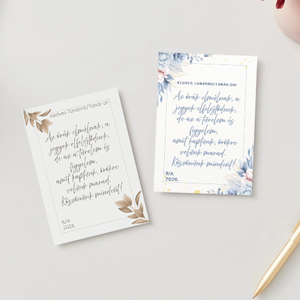 Kedves Tanárnő/Tanár úr!
Az órák elmúlnak, a
jegyek elfelejtődnek,
de az a türelem és
figyelem,
amit kaptunk, örökre
velünk marad.
Köszönünk mindent!
8/A
2026.
KEDVES TANÁRNŐ/TANÁR ÚR!
Az órák elmúlnak, a
jegyek elfelejtődnek,
de az a türelem és
figyelem,
amit kaptunk, örökre
velünk marad.
Köszönünk mindent!
8/A
2026.